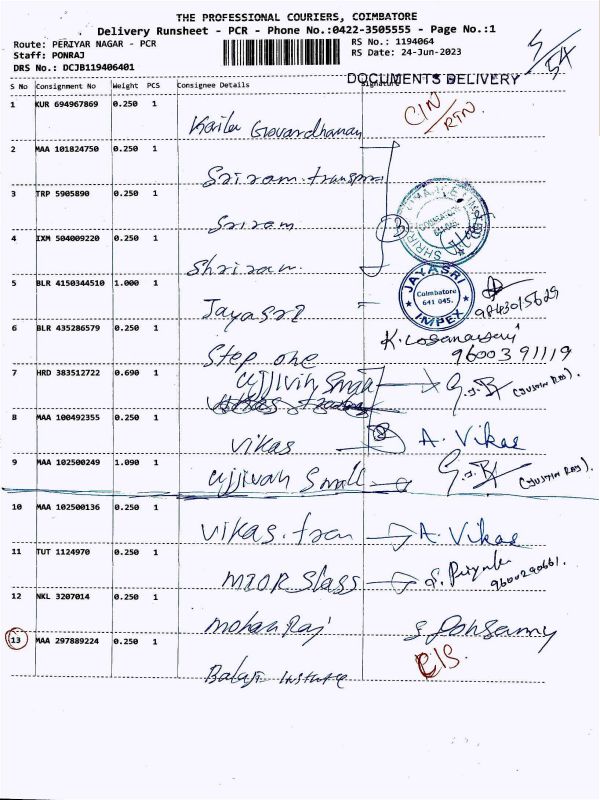 THE PROFESSIONAL COURIERS, COIMBATORE
Delivery Runsheet - PCR - Phone No.:0422-3505555 - Page No.:1
Route: PERIYAR NAGAR - PCR
RS No.: 1194064
Staff: PONRAJ
RS Date: 24-Jun-2023
DRS No.: DCJB119406401
DOCUMENTS DELIVERY
S No Consignment No Weight PCS Consignee Details Signature
1 KUR 694967869 0.250 1
CIN/RTN
Kaila Govardhanan
2 MAA 101824750 0.250 1
Sriram transpo
3 TRP 5905890 0.250 1
Sriram
3
4 IXM 504009220 0.250 1
Shriram
5 BLR 4150344510 1.000 1
JAYASRI IMPEX
Coimbatore
641 045.
Jayasri
9843015629
6 BLR 435286579 0.250 1
Step one
9600391119
7 HRD 383512722 0.690 1
Ujjivin Small
(JUSTIN RAJ).
8 MAA 100492355 0.250 1
Vikas A. Vikas
9 MAA 102500249 1.090 1
Ujjivan Small
(JUSTIN RAJ).
10 MAA 102500136 0.250 1
Vikas tran A. Vikas
11 TUT 1124970 0.250 1
S. Priyanka
9600290661.
12 NKL 3207014 0.250 1
Mohan Raj
13 MAA 297889224 0.250 1
Balaji